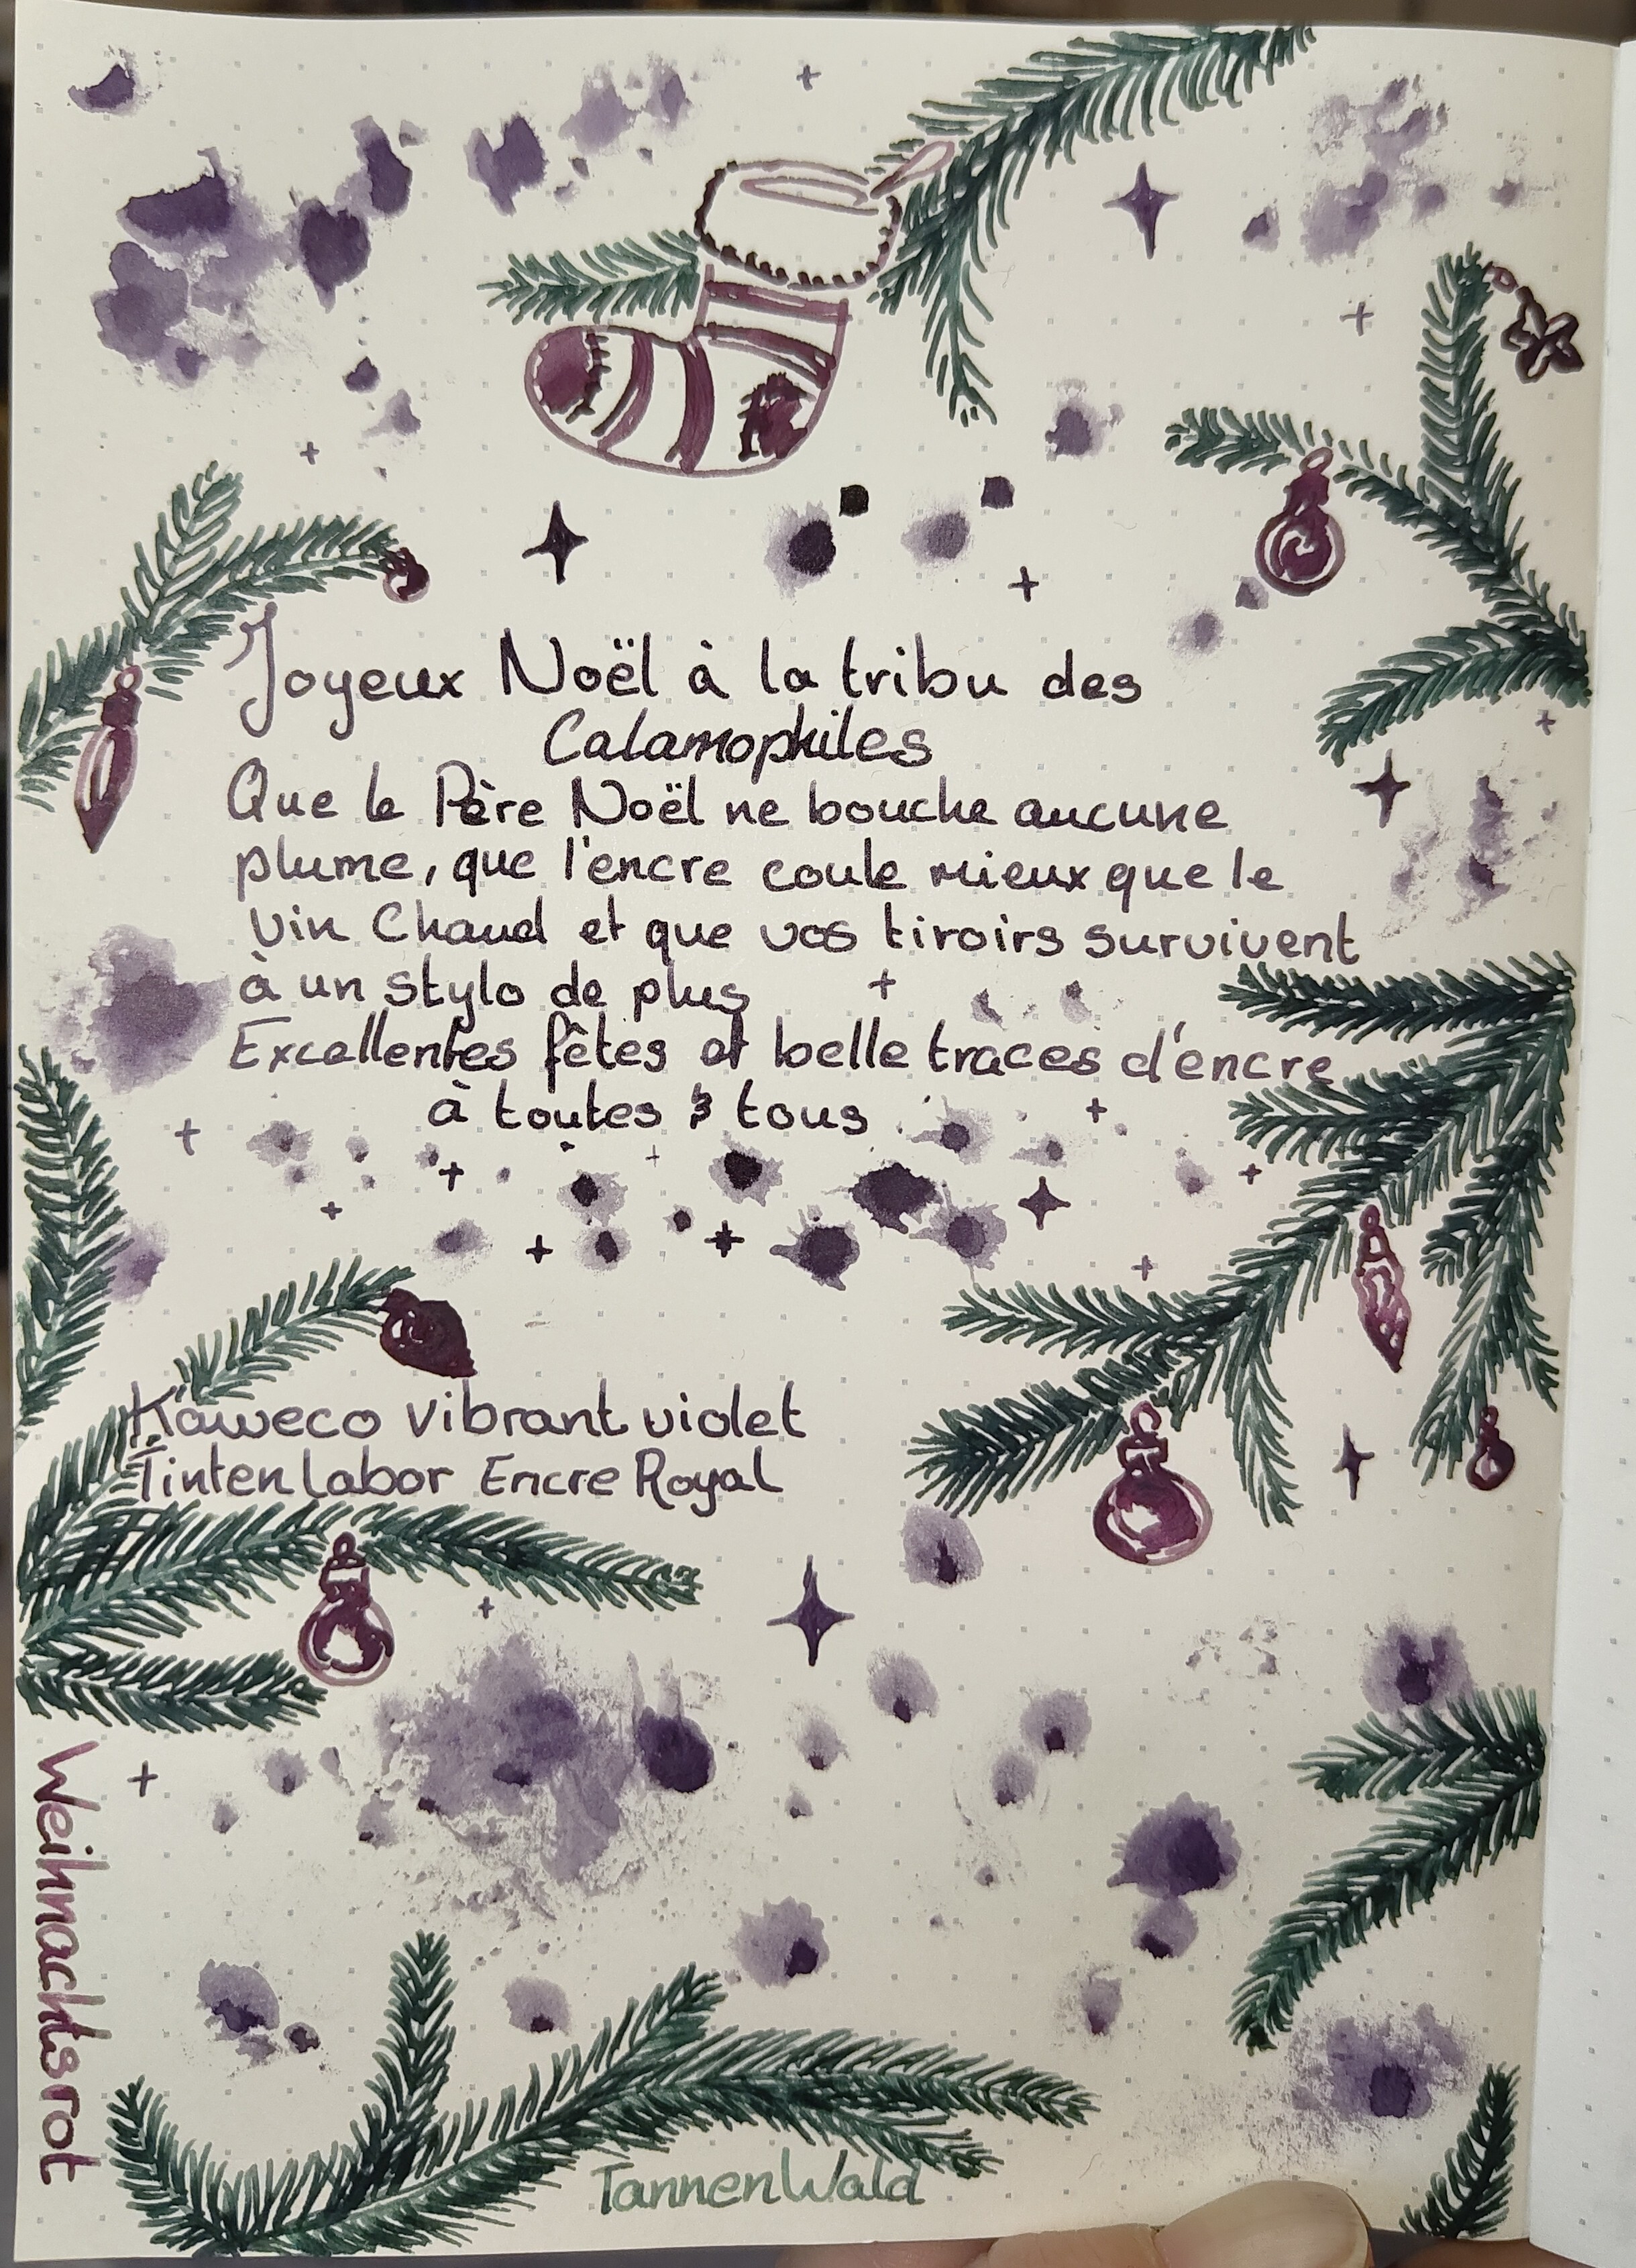 Joyeux Noël à la tribu des
Calamophiles
Que le Père Noël ne bouche aucune
plume, que l'encre coule mieux que le
Vin Chaud et que vos tiroirs survivent
à un stylo de plus
Excellentes fêtes et belle traces d'encre
à toutes & tous
Kaweco vibrant violet
Tintenlabor Encre Royal
Weihnachtsrot
TannenWald